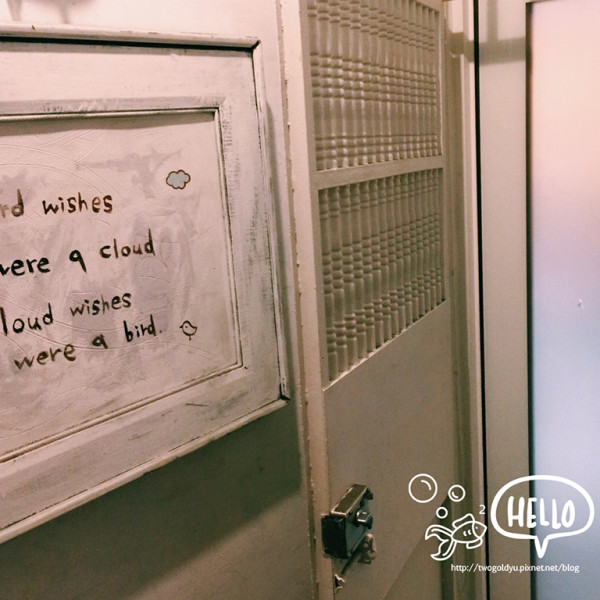 rd wishes
were a cloud
loud wishes
were a bird.
2
HELLO
http://twogoldyu.pixnet.net/blog